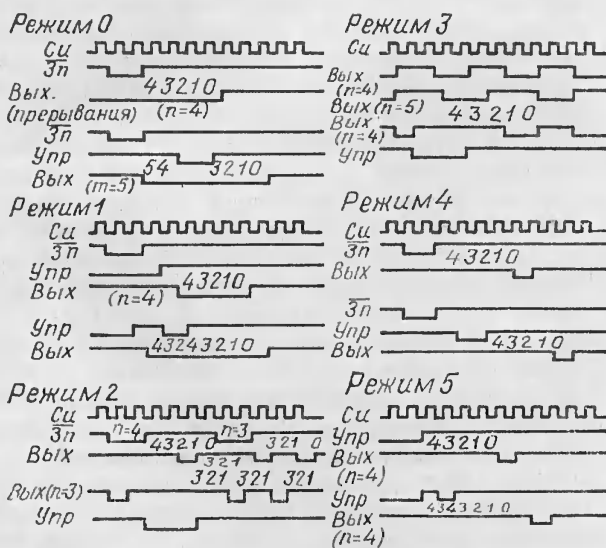 Режим 0
Си
Зп
43210
Вых.
(прерывания)
(n=4)
Зп
Упр
54
3210
Вых
(m=5)
Режим 1
Си
Зп
Упр
43210
Вых
(n=4)
Упр
Вых
43243210
Режим 2
Си
Зп
n=4
n=3
43210
321 0
Вых
321
321 321 321
Вых(n=3)
Упр
Режим 3
Си
Вых
(n=4)
Вых(n=5)
43210
Вых
(n=4)
Упр
Режим 4
Си
Зп
43210
Вых
Зп
Упр
43210
Вых
Режим 5
Си
Упр
43210
Вых
(n=4)
Упр
4343210
Вых
(n=4)